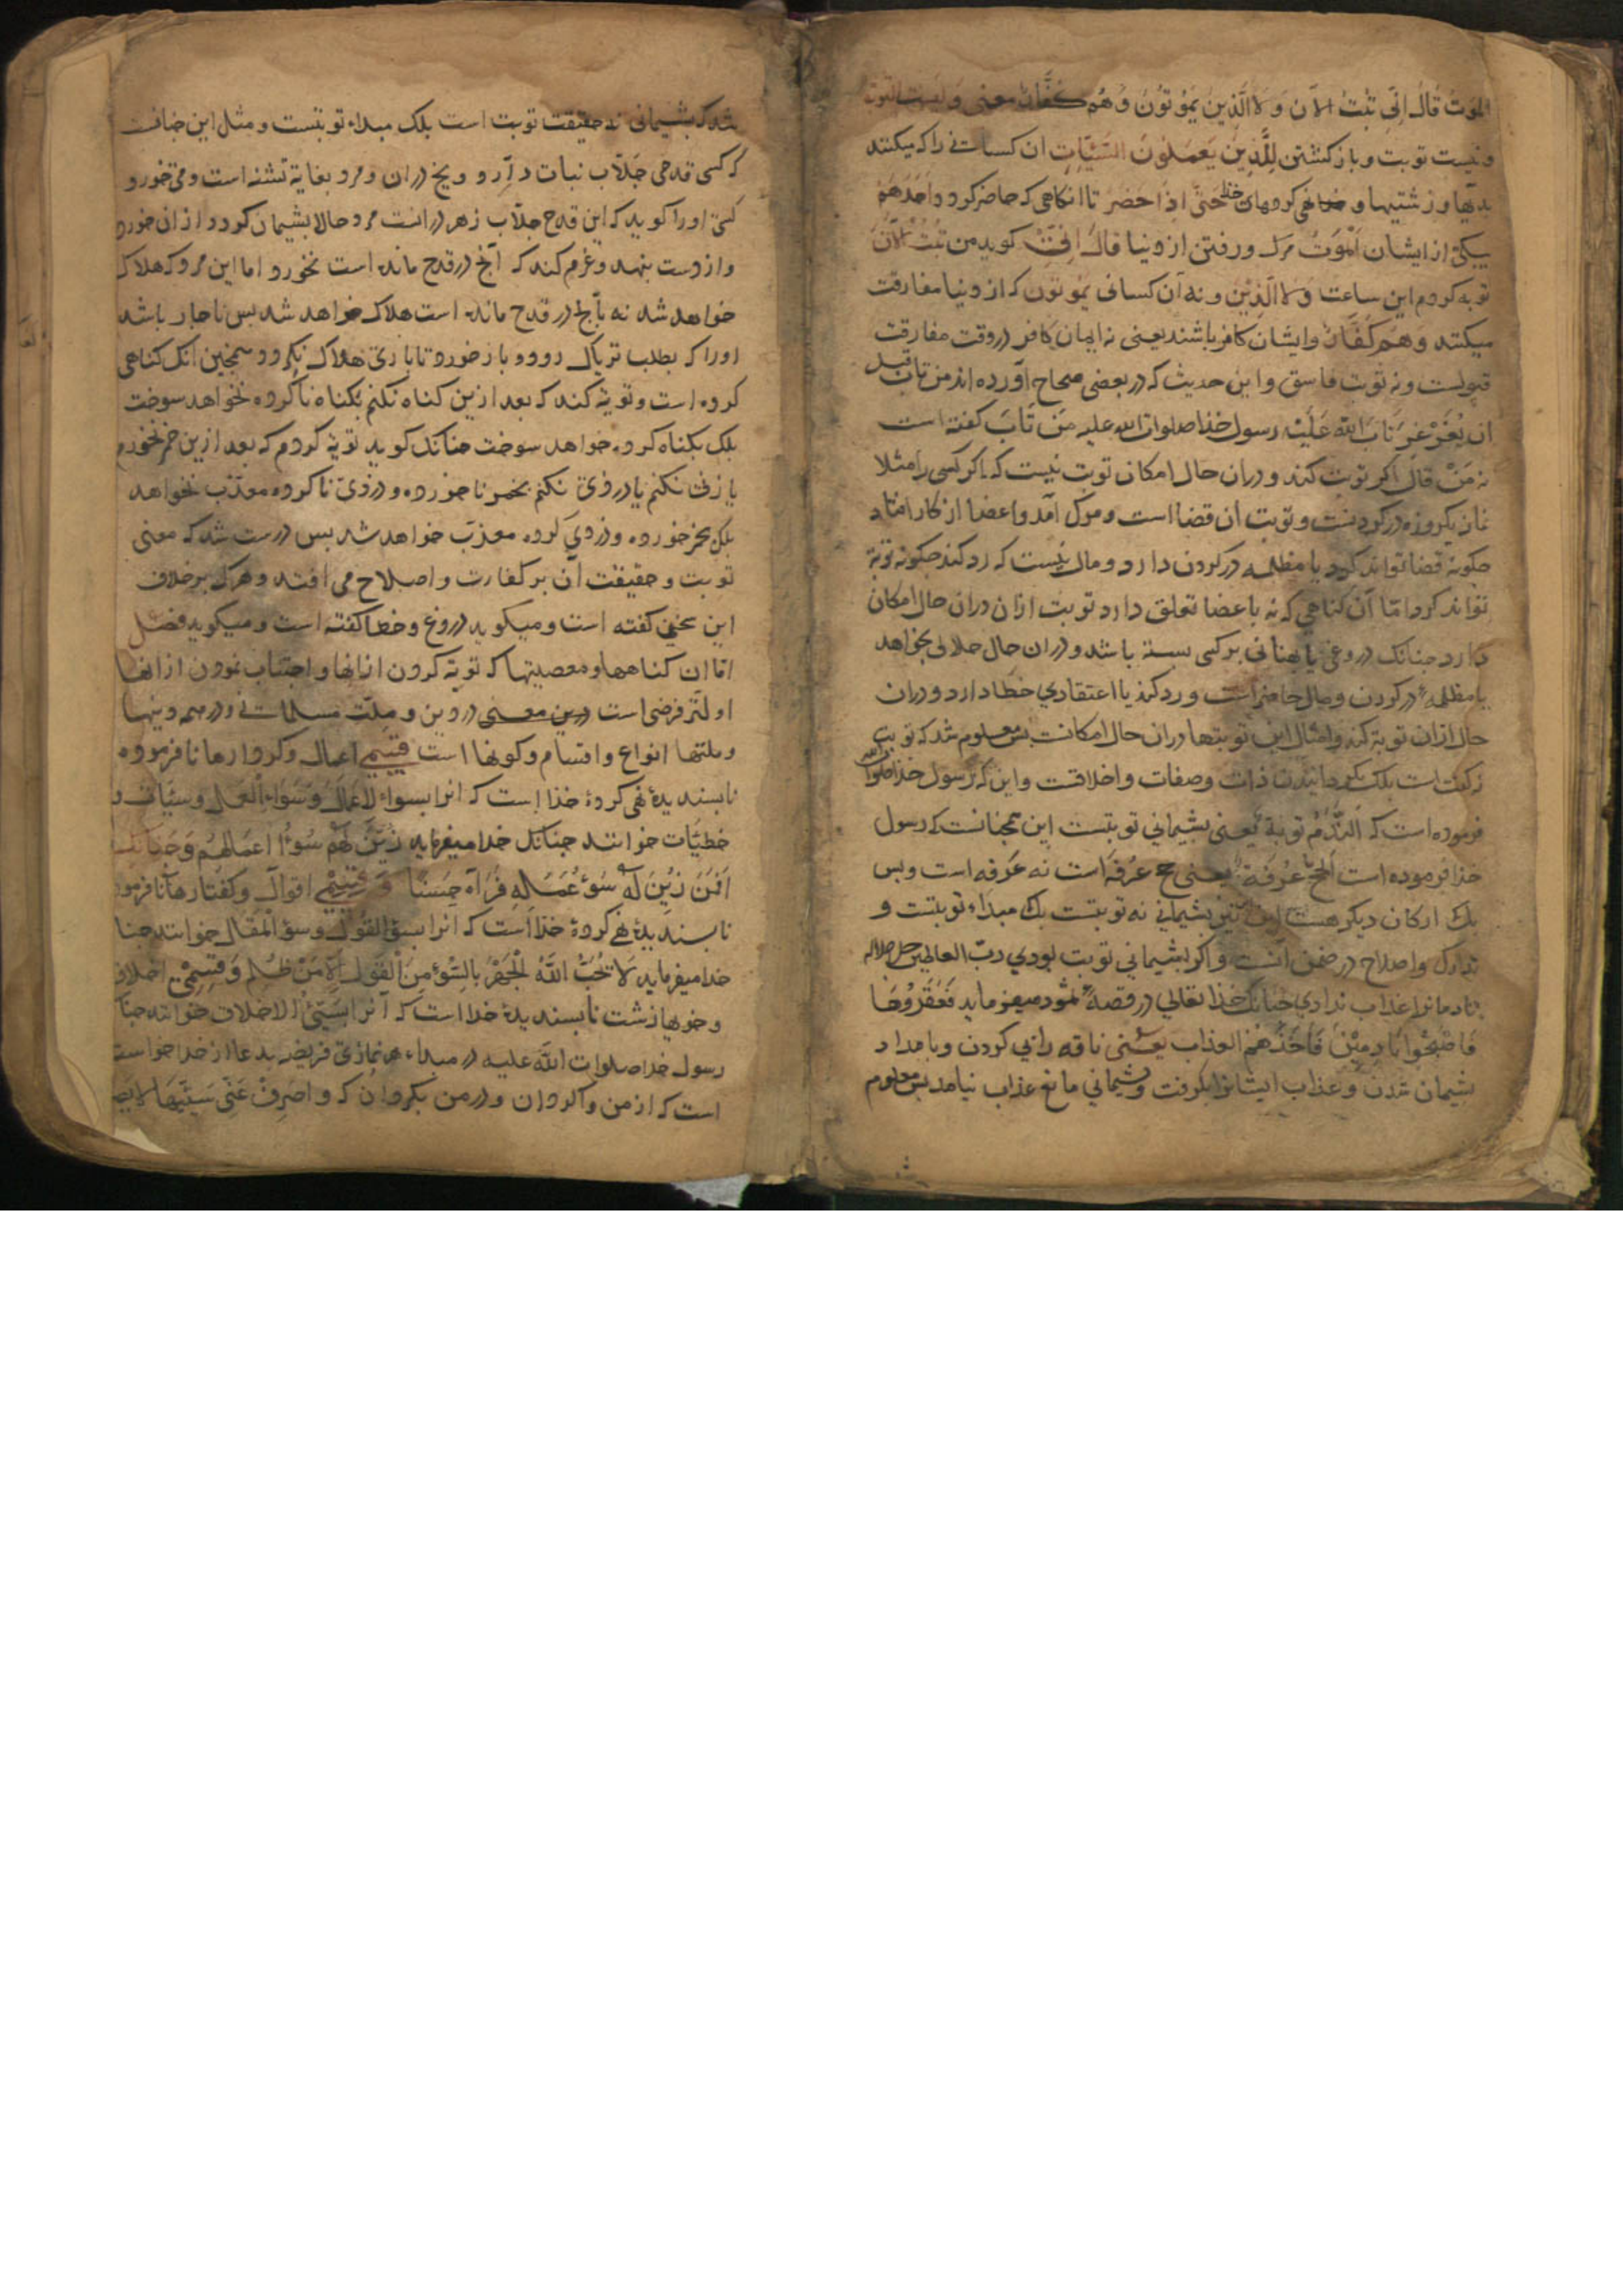 الموت قال انی تبت الآن و لا الذین یموتون و هم کفار معنی و لیست التوبة
و نیست توبت و باز کشتن للذین یعملون السیئات ان کسانے را که میکنند
بدیها و زشتیها و کردهای حتی اذا حضر تا انکاهی که حاضر کردد احدهم
بیکی از ایشان الموت مرک و رفتن از دنیا قال انی کوید من تبت الآن
توبه کردم این ساعت و لا الذین و نه آن کسانی یموتون که از دنیا مفارقت
میکنند و هم کفار و ایشان کافر باشند یعنی نه ایمان کافر در وقت مفارقت
قبولست و نه توبت فاسق و این حدیث که در بعضی صحاح آورده اند من تاب قبل
ان یغرغر تاب الله علیه رسول خذا صلوات الله علیه من تاب کفته است
نه من قال اکر توبت کند و دران حال امکان توبت نیست که اکر کسی را مثلا
نماز یکروزه در کردنست و توبت آن قضا است و مرک آمد و اعضا از کار افتاد
چکونه قضا تواند کرد یا مظلمه در کردن دارد و مال نیست که رد کند چکونه توبه
تواند کرد امّا آن کناهی که نه باعضا تعلق دارد توبت ازان دران حال امکان
دارد چنانک دروغی یا بهتانی برکسی بسته باشد و دران حال حلالی بخواهد
یا مظلمه در کردن و مال حاضر است و رد کند یا اعتقادی خطا دارد و دران
حال ازان توبه کند و امثال این توبتها دران حال امکانست پس معلوم شد که توبت
نه کفت است بلک کردانیدن ذات و صفات و اخلاقت و این که رسول خذا صلوات الله
فرموده است که الندم توبة یعنی پشیمانی توبتست این همچنانست که رسول
خذا فرموده است الحج عرفة یعنی حج عرفه است نه عرفه است و بس
بلک ارکان دیکر هست این نیز پشیمانی نه توبتست بلک مبداء توبتست و
تدارک و اصلاح در ضمن آنست و اکر پشیمانی توبت بودی ربّ العالمین جل جلاله
نادمانرا عذاب ندادی چنانک خذا تعالی در قصه ثمود میفرماید فعقروها
فاصبحوا نادمین فاخذهم العذاب یعنی ناقه را پی کردن و بامداد
پشیمان شدن و عذاب ایشانرا بکرفت و پشیمانی مانع عذاب نیامد پس معلوم
شد که پشیمانی نه حقیقت توبت است بلک مبداء توبتست و مثل این چنانست
که کسی قدحی جلّاب نبات دارد و یخ دران و مرد بغایة تشنه است و می خورد و
کسی اورا کوید که این قدح جلّاب زهر درانست مرد حالا پشیمان کردد و از ان خوردن
و از دست بنهد و عزم کند که آنچ در قدح مانده است نخورد اما این مرد که هلاک
خواهد شد نه بآنچ در قدح مانده است هلاک خواهد شد پس ناچار باشد
اورا که بطلب تریاک رود و باز خورد تا باری هلاک نکردد همچنین آنک کناهی
کرده است و توبه کند که بعد ازین کناه نکنم بکناه ناکرده نخواهد سوخت
بلک بکناه کرده خواهد سوخت چنانک کوید توبه کردم که بعد ازین خمر نخورم
یا زنا نکنم یا دزدی نکنم بخمر ناخورده و دزدی ناکرده معذّب نخواهد
بلک بخمر خورده و دزدی کرده معذّب خواهد شد پس درست شد که معنی
توبت و حقیقت آن بر کفارت و اصلاح می افتد و هرک برخلاف
این سخنی کفته است و میکوید دروغ و خطا کفته است و میکوید فصل
امّا ان کناهها و معصیتها که توبه کردن از انها و اجتناب نمودن از انها
اولتر فرضی است درین معنی در دین و ملّت مسلمانے و در همه دینها
و ملتها انواع و اقسام و کونها است قسمی اعمال و کردارها نافرموده
ناپسندیدهٔ نهی کردهٔ خذا است که انرا بسوء الاعمال و سوء العمل و سیئات و
خطیّات خوانند چنانک خدا میفرماید زین لهم سوء اعمالهم و چنانک
افمن زین له سوء عمله فرآه حسنا و قسمی اقوال و کفتارها نافرموده
ناپسندیدهٔ نهی کردهٔ خذا است که انرا بسوء القول و سوء المقال خوانند چنانک
خدا میفرماید لا یحب الله الجهر بالسوء من القول الا من ظلم و قسمی اخلاق
و خویها زشت ناپسندیدهٔ خدا است که آنرا بسیئ الاخلاق خوانند چنانک
رسول خدا صلوات الله علیه در مبداء هر نمازی فریضه بدعا از خدا خواسته
است که از من واکردان و در من بکردان که و اصرف عنی سیئها لا یصرف